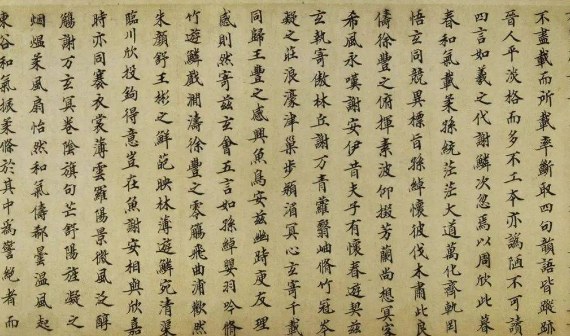 不盡載而所載率斷取四句韻語皆蹤跡
晉人平淡格而多不工本亦譾陋不可讀
四言如羲之代謝鱗次忽焉以周欣此暮
春和氣載柔孫統茫茫大道萬化齊軌罔
悟玄同競異標旨孫綽懷彼伐木肅此良
儔徐豐之俯揮素波仰掇芳蘭尚想冥客
希風永嘆謝安伊昔夫子有懷春遊契茲
玄執寄傲林丘謝万青蘿翳岫脩竹冠岑
凝之莊浪濠津巢步潁湄冥心玄寄千載
同歸王豐之感興魚鳥安茲幽時庾友理
感則然寄茲玄會五言如孫綽嬰羽吟脩
竹遊鱗戲瀾濤徐豐之零觴飛曲浦歡然
朱顏舒王彬之鮮葩映林薄遊鱗宛清渠
臨川欣投鉤得意豈在魚謝安相與欣嘉
時亦同褰衣裳薄雲羅陽景微風汎醇
觴謝万玄冥卷陰旗句芒舒陽旌凝之
烟熅柔風扇怡然和氣儔郗曇溫風起
東谷和氣候柔脩於其中為警絕者而